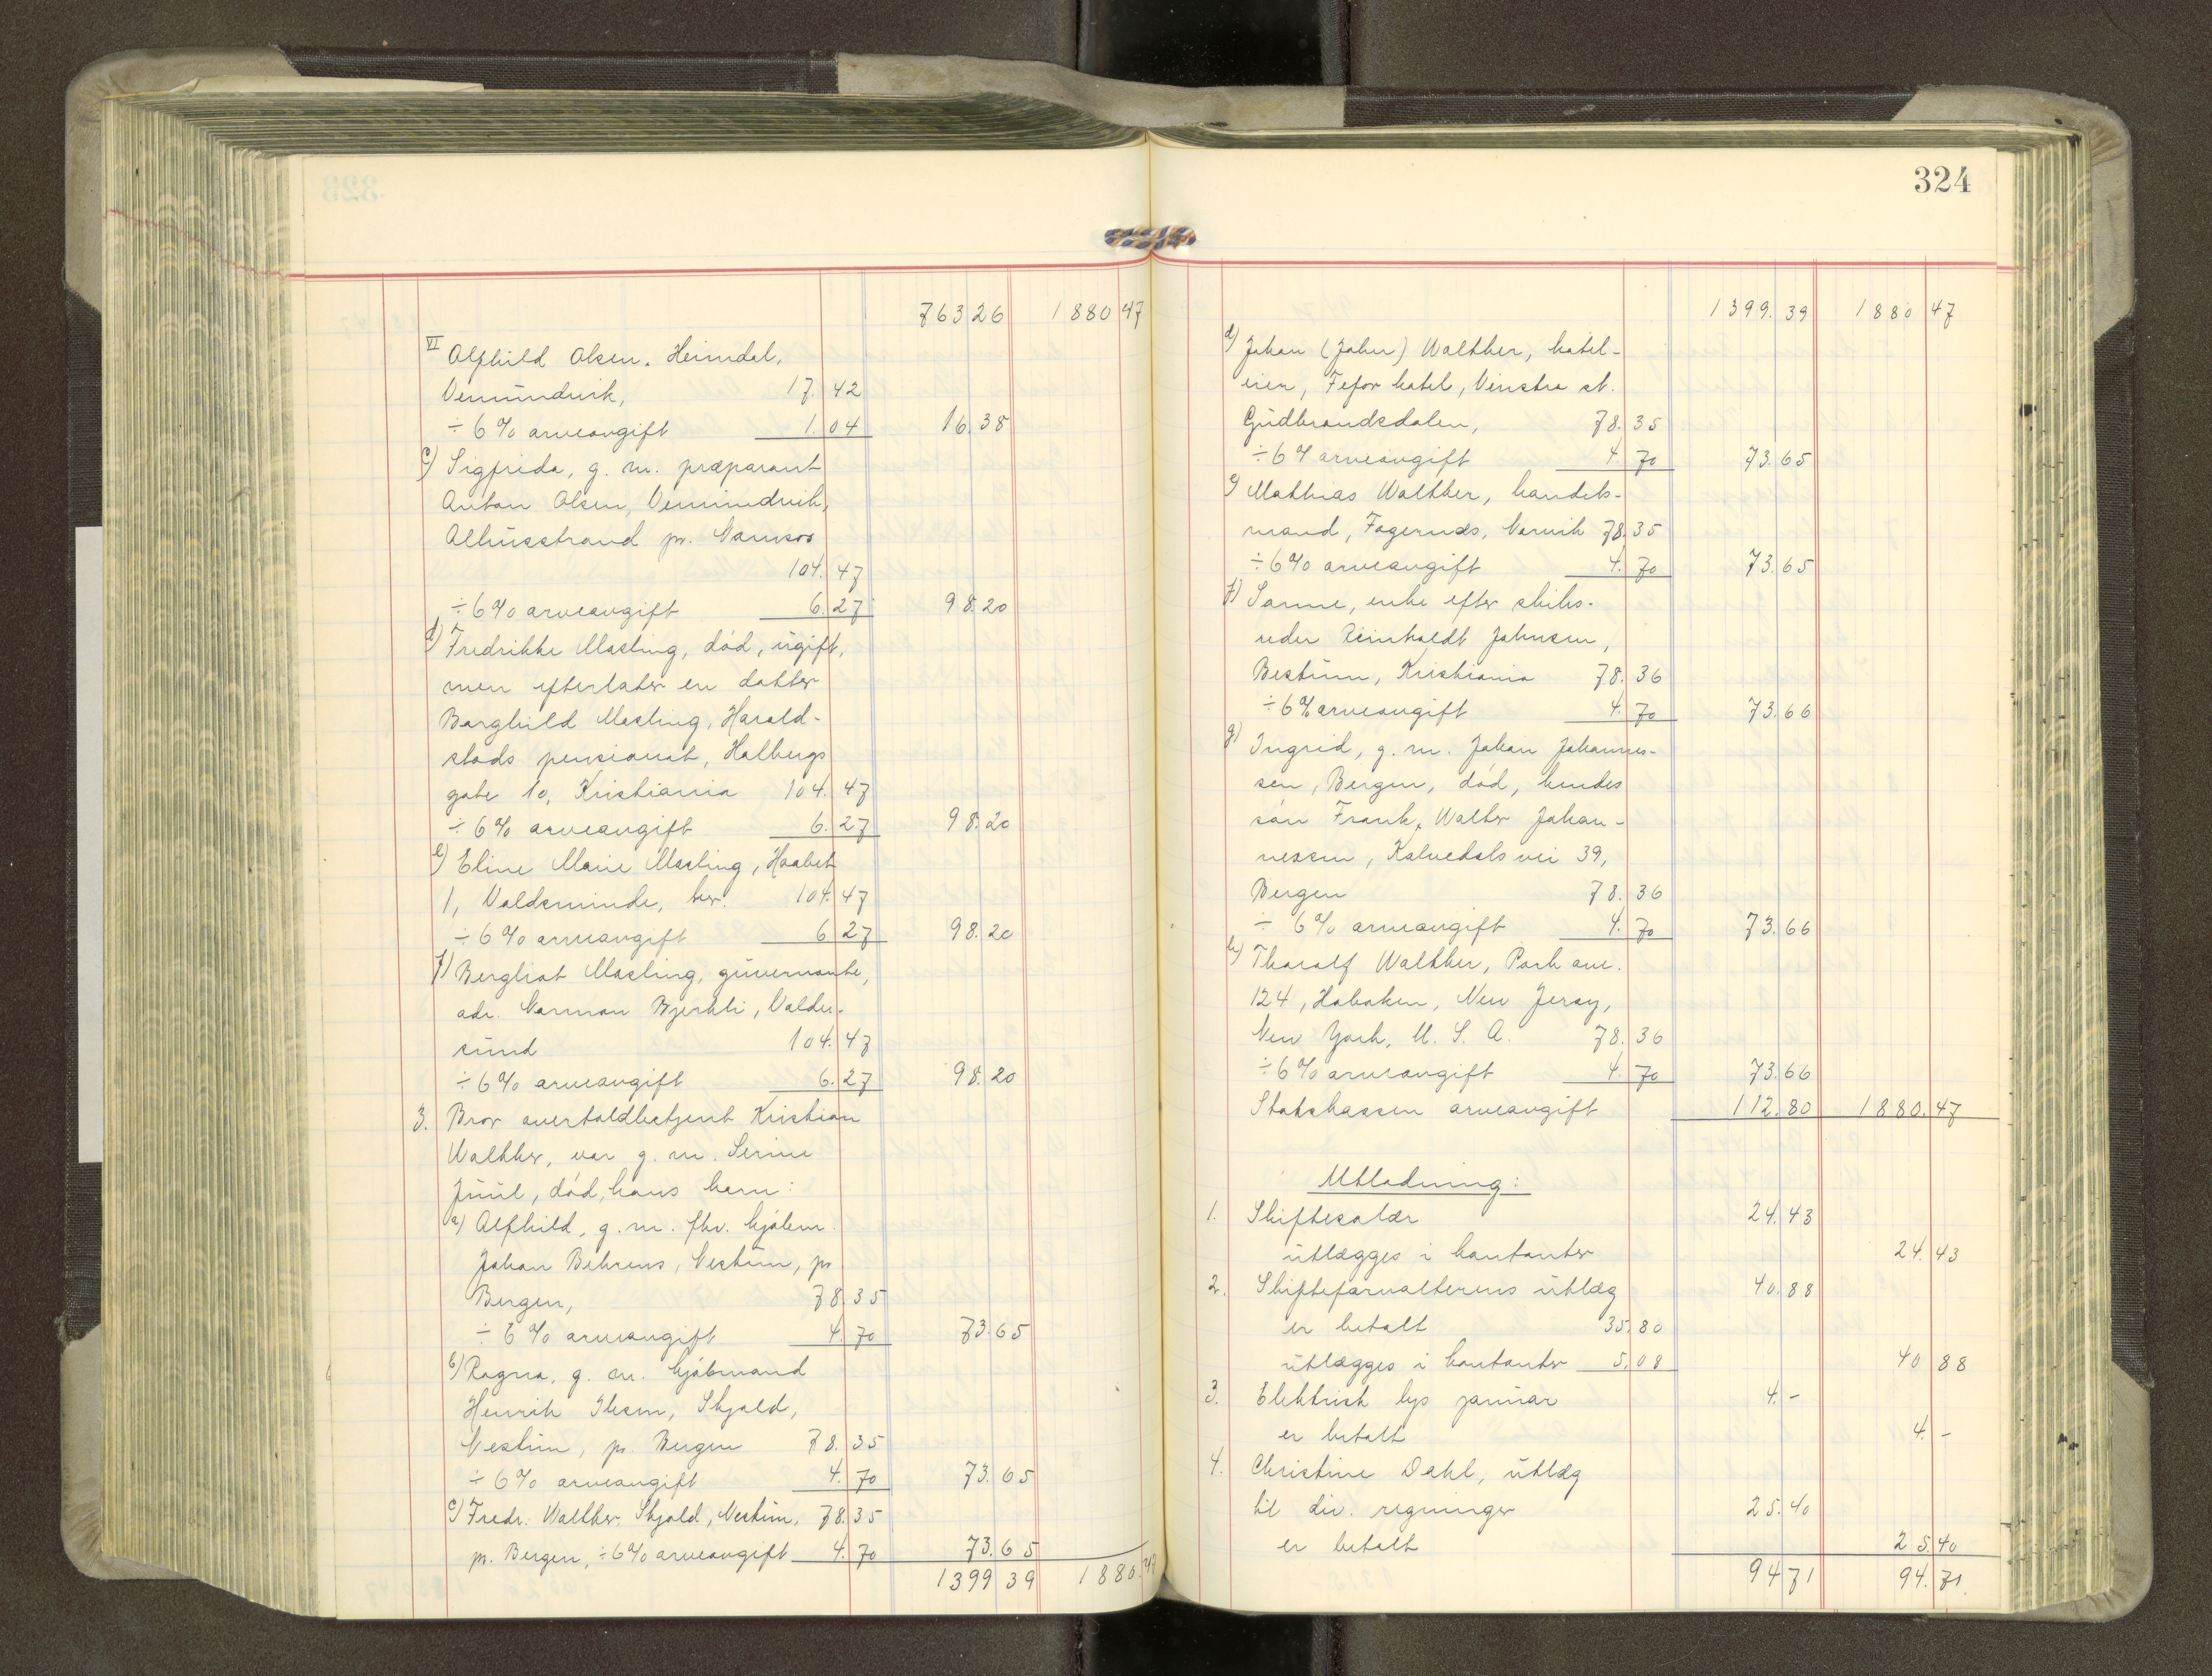 763 26 1880 47
VI Alfhild Olsen, Heimdal,
Vemundvik, 17. 42
÷ 6 % arveavgift 1. 04 16. 38
c) Sigfrida, g. m. præparant
Anton Olsen, Vemundvik,
Alhusstrand pr. Namsos
104. 47
÷ 6 % arveavgift 6. 27 98. 20
d) Fredrikke Masling, død, ugift,
men efterlater en datter
Borghild Masling, Harald-
stads pensionat, Holbergs
gate 10, Kristiania 104. 47
÷ 6 % arveavgift 6. 27 98. 20
e) Eline Marie Masling, Haabet
1, Valdsminde, her. 104. 47
÷ 6 % arveavgift 6. 27 98. 20
f) Bergliot Masling, guvernante,
adr. Norman Bjerkli, Valder-
sund 104. 47
÷ 6 % arveavgift 6. 27 98. 20
3. Bror overtoldbetjent Kristian
Walther, var g. m. Serine
Juul, død, hans barn:
a) Alfhild, g. m. fhv. kjøbm.
Johan Behrens, Nestun, pr
Bergen, 78. 35
÷ 6 % arveavgift 4. 70 73. 65
b) Ragna, g. m. kjøbmand
Henrik Ibsen, Skjold,
Nestun, pr. Bergen 78. 35
÷ 6 % arveavgift 4. 70 73. 65
c) Fredr. Walther, Skjold, Nestun, 78. 35
pr. Bergen, ÷ 6 % arveavgift 4. 70 73. 65
1399 39 1880. 47
324
1399. 39 1880 47
d) Johan (John) Walther, hotel-
eier, Fefor hotel, Vinstra st.
Gudbrandsdalen, 78. 35
÷ 6 % arveavgift 4. 70 73. 65
e) Mathias Walther, handels-
mand, Fagernæs, Narvik 78. 35
÷ 6 % arveavgift 4. 70 73. 65
f) Sanne, enke efter skibs-
reder Reinholdt Johnsen,
Bestum, Kristiania 78. 36
÷ 6 % arveavgift 4. 70 73. 66
g) Ingrid, g. m. Johan Johannes-
sen, Bergen, død, hendes
søn Frank Walter Johan-
nessen, Kalvedals vei 39,
Bergen 78. 36
÷ 6 % arveavgift 4. 70 73. 66
h) Tharalf Walther, Park ave.
124, Hoboken, New Jersy,
New York, U. S. A. 78. 36
÷ 6 % arveavgift 4. 70 73. 66
Statskassen arveavgift 112. 80 1880. 47
Utlodning:
1. Skiftesalær 24. 43
utlægges i kontanter 24. 43
2. Skifteforvalterens utlæg 40. 88
er betalt 35. 80
utlægges i kontanter 5. 08 40 88
3. Elektrisk lys januar 4. -
er betalt 4. -
4. Christine Dahl, utlæg
til div. regninger 25. 40
er betalt 25. 40
94 71 94. 71